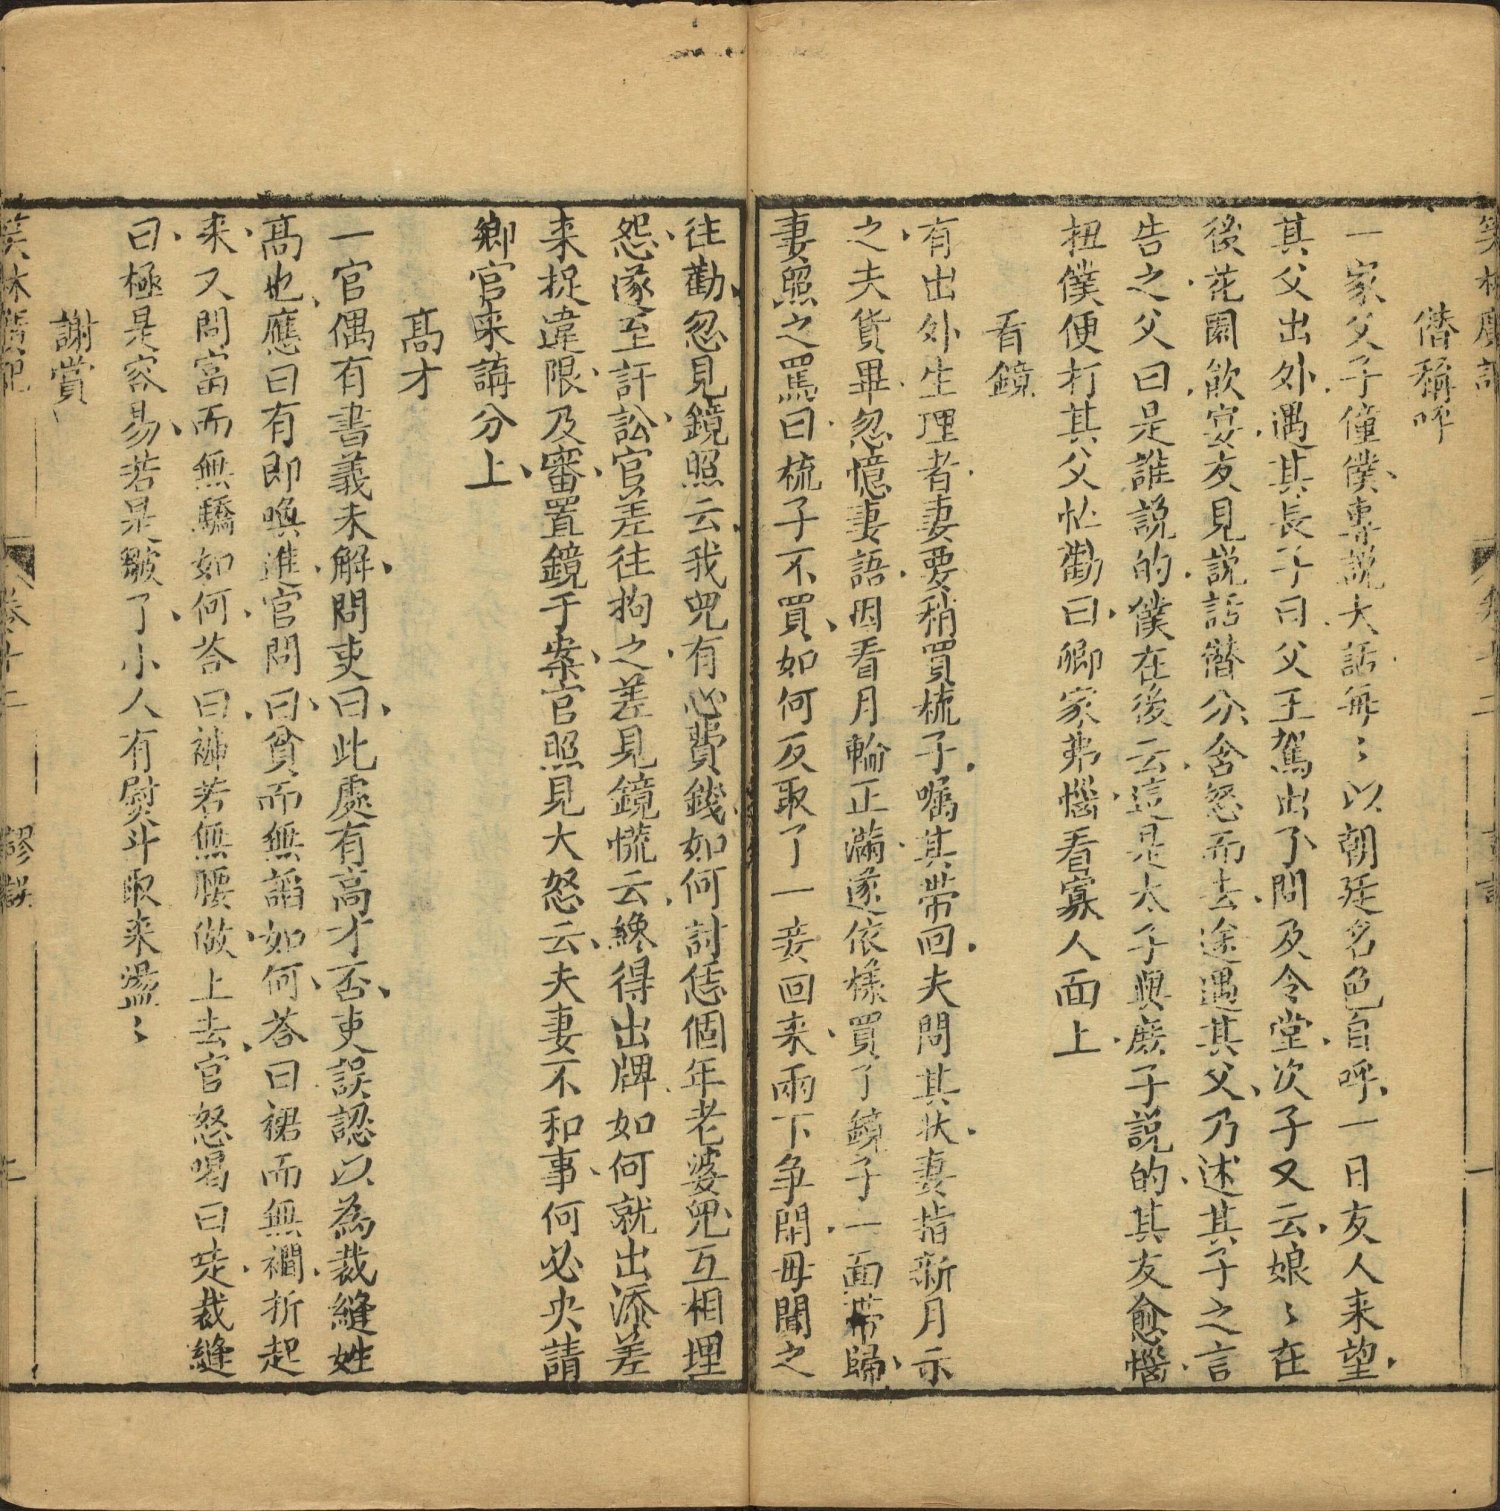 僭稱呼
一家父子僮僕專説大話每〻以朝廷名色自呼一日友人来望
其父出外遇其長子曰父王駕出了問及令堂次子又云娘〻在
後花園飲宴友見説話僭分含怒而去途遇其父乃述其子之言
告之父曰是誰説的僕在後云這是太子與庶子説的其友愈惱
扭僕便打其父忙勸曰卿家弗惱看寡人面上
看鏡
有出外生理者妻要稍買梳子嘱其带回夫問其状妻指新月示
之夫貨畢忽憶妻語因看月輪正滿遂依樣買了鏡子一面带歸
妻照之罵曰梳子不買如何反取了一妾回来兩下争閙母聞之
往勸忽見鏡照云我兒有心費錢如何討恁個年老婆兒互相埋
怨遂至訐訟官差往拘之差見鏡慌云纔得出牌如何就出添差
来捉違限及審置鏡于案官照見大怒云夫妻不和事何必央請
鄉官来講分上
高才
一官偶有書義未解問吏曰此處有高才否吏誤認以為裁縫姓
高也應曰有即喚進官問曰貧而無諂如何荅曰裙而無襉折起
来又問富而無驕如何荅曰褲若無腰做上去官怒喝曰走裁縫
曰極是容易若是皺了小人有熨斗取来盪〻
謝賞
笑林廣記
卷十二
謬誤